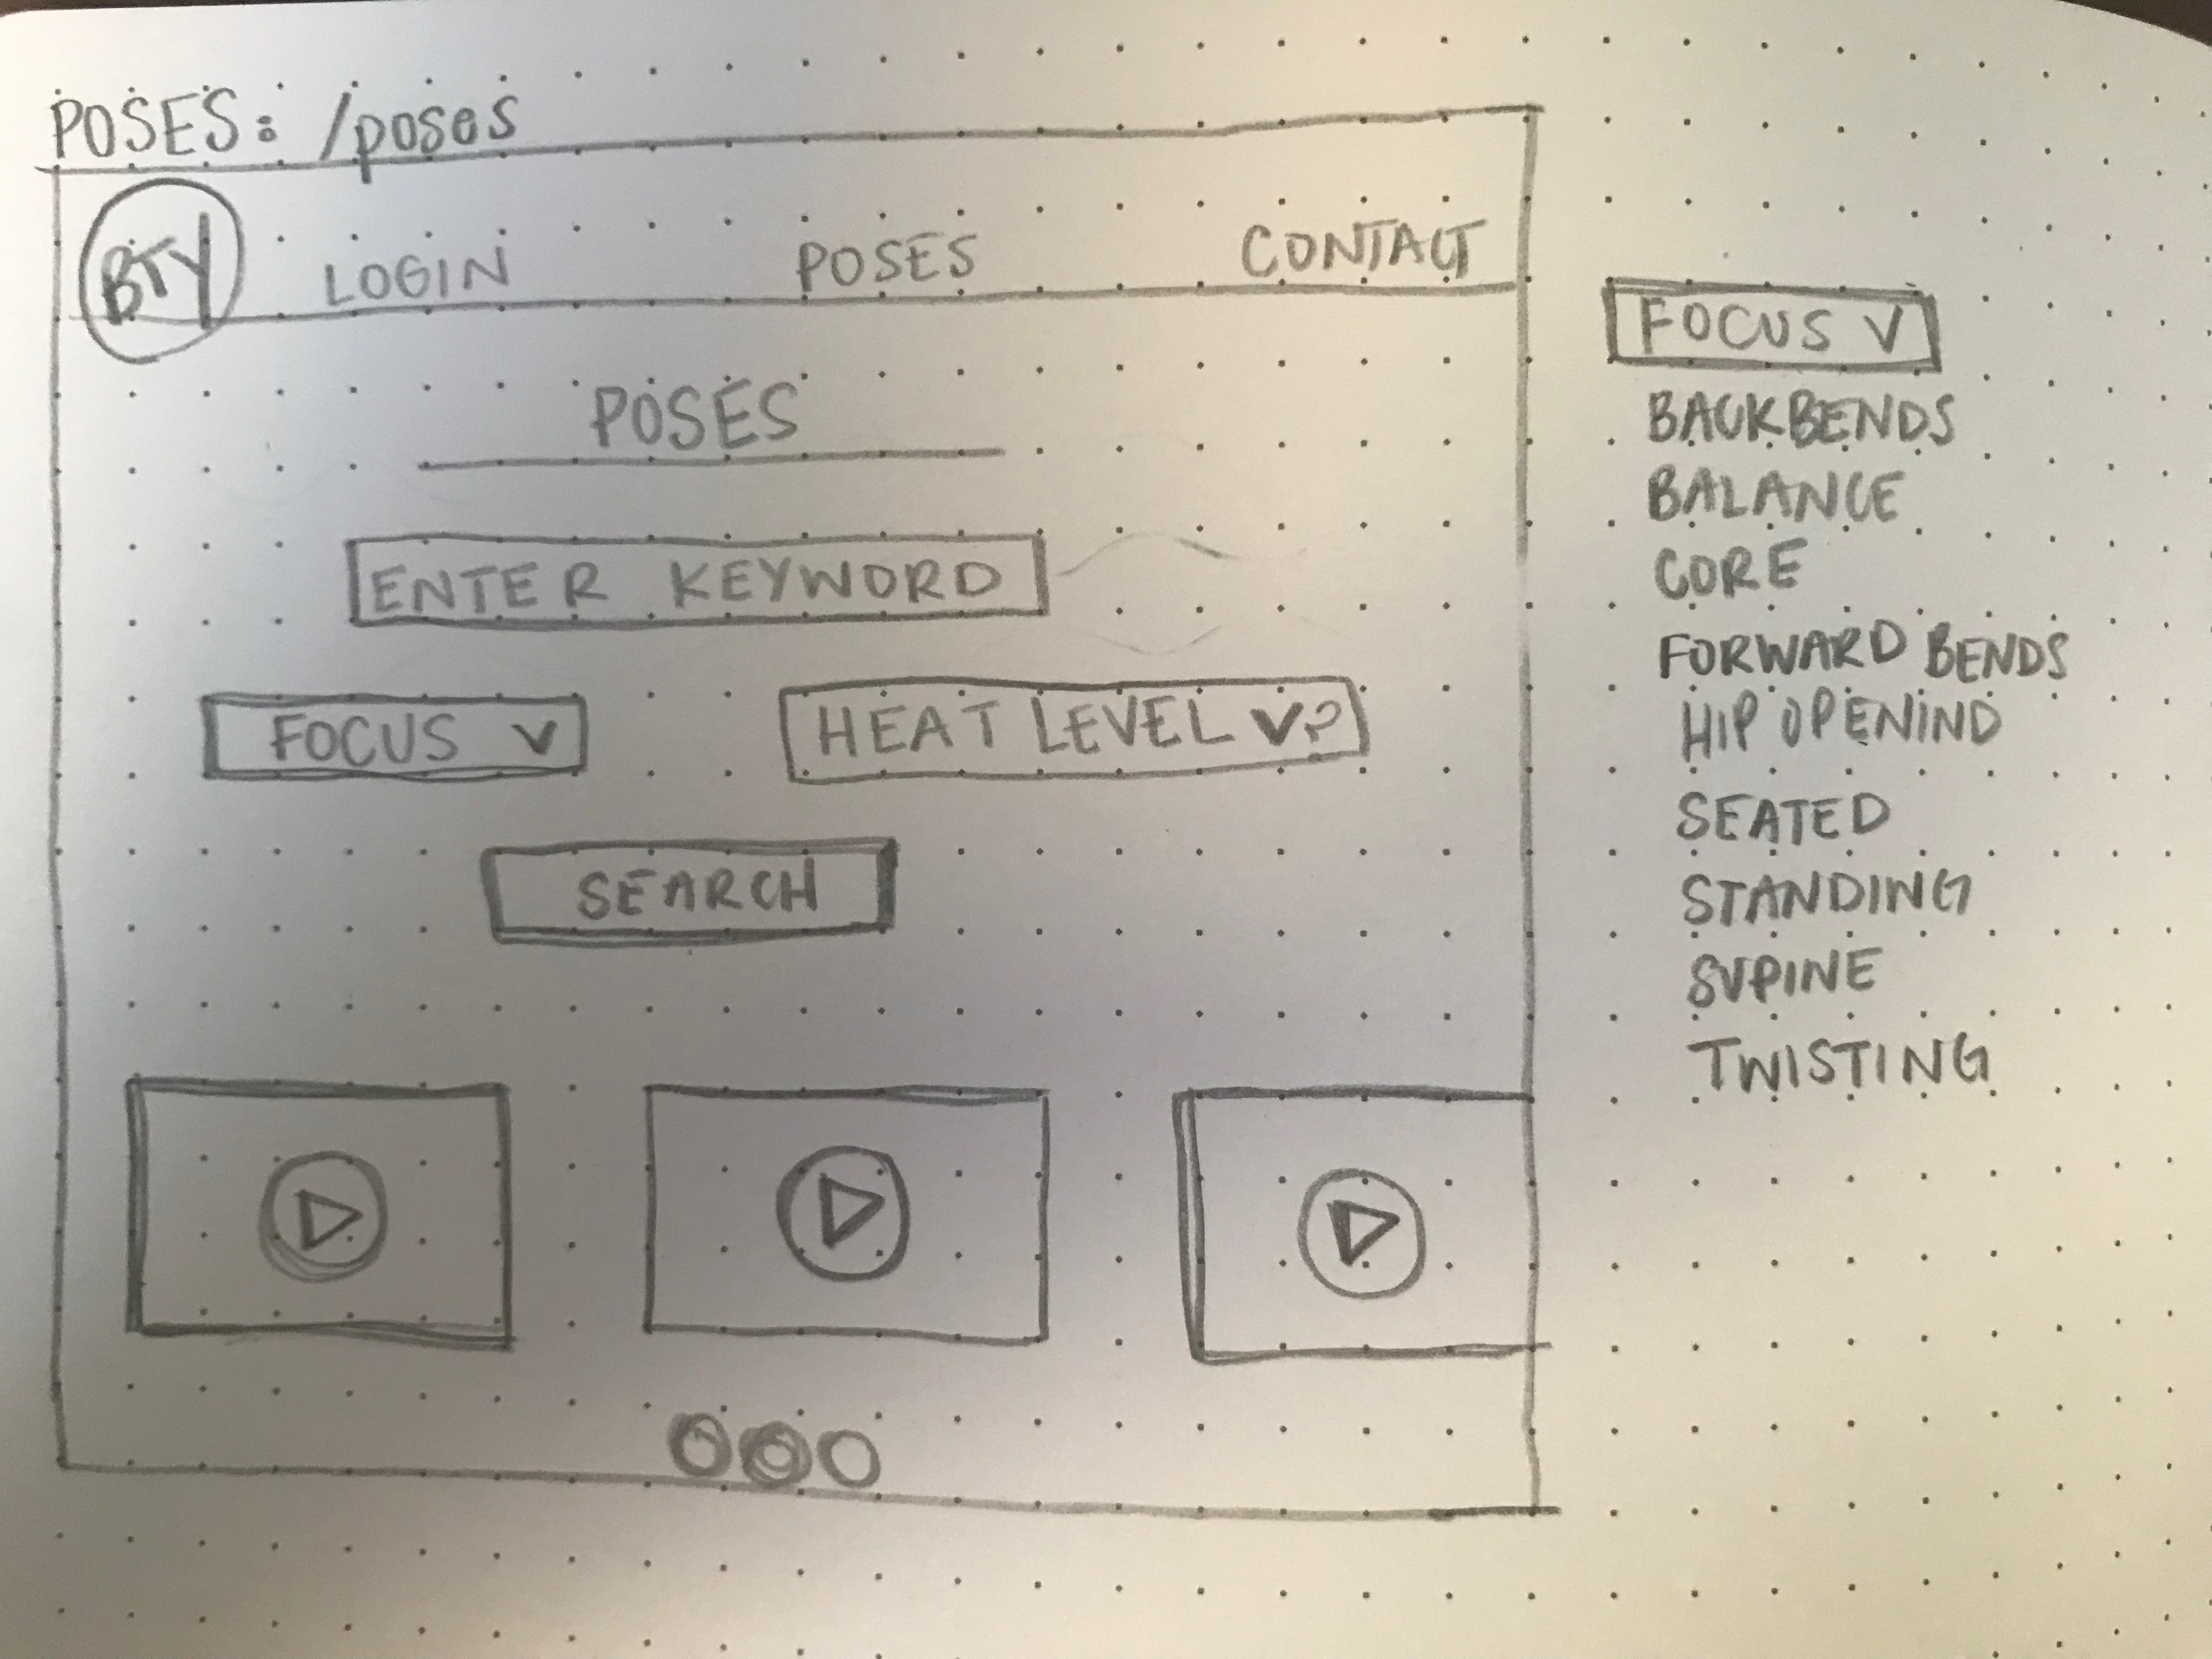 POSES: /poses
BTY LOGIN POSES CONTACT
POSES
ENTER KEYWORD
FOCUS V
HEAT LEVEL V?
SEARCH
FOCUS V
BACKBENDS
BALANCE
CORE
FORWARD BENDS
HIP OPENIND
SEATED
STANDING
SUPINE
TWISTING